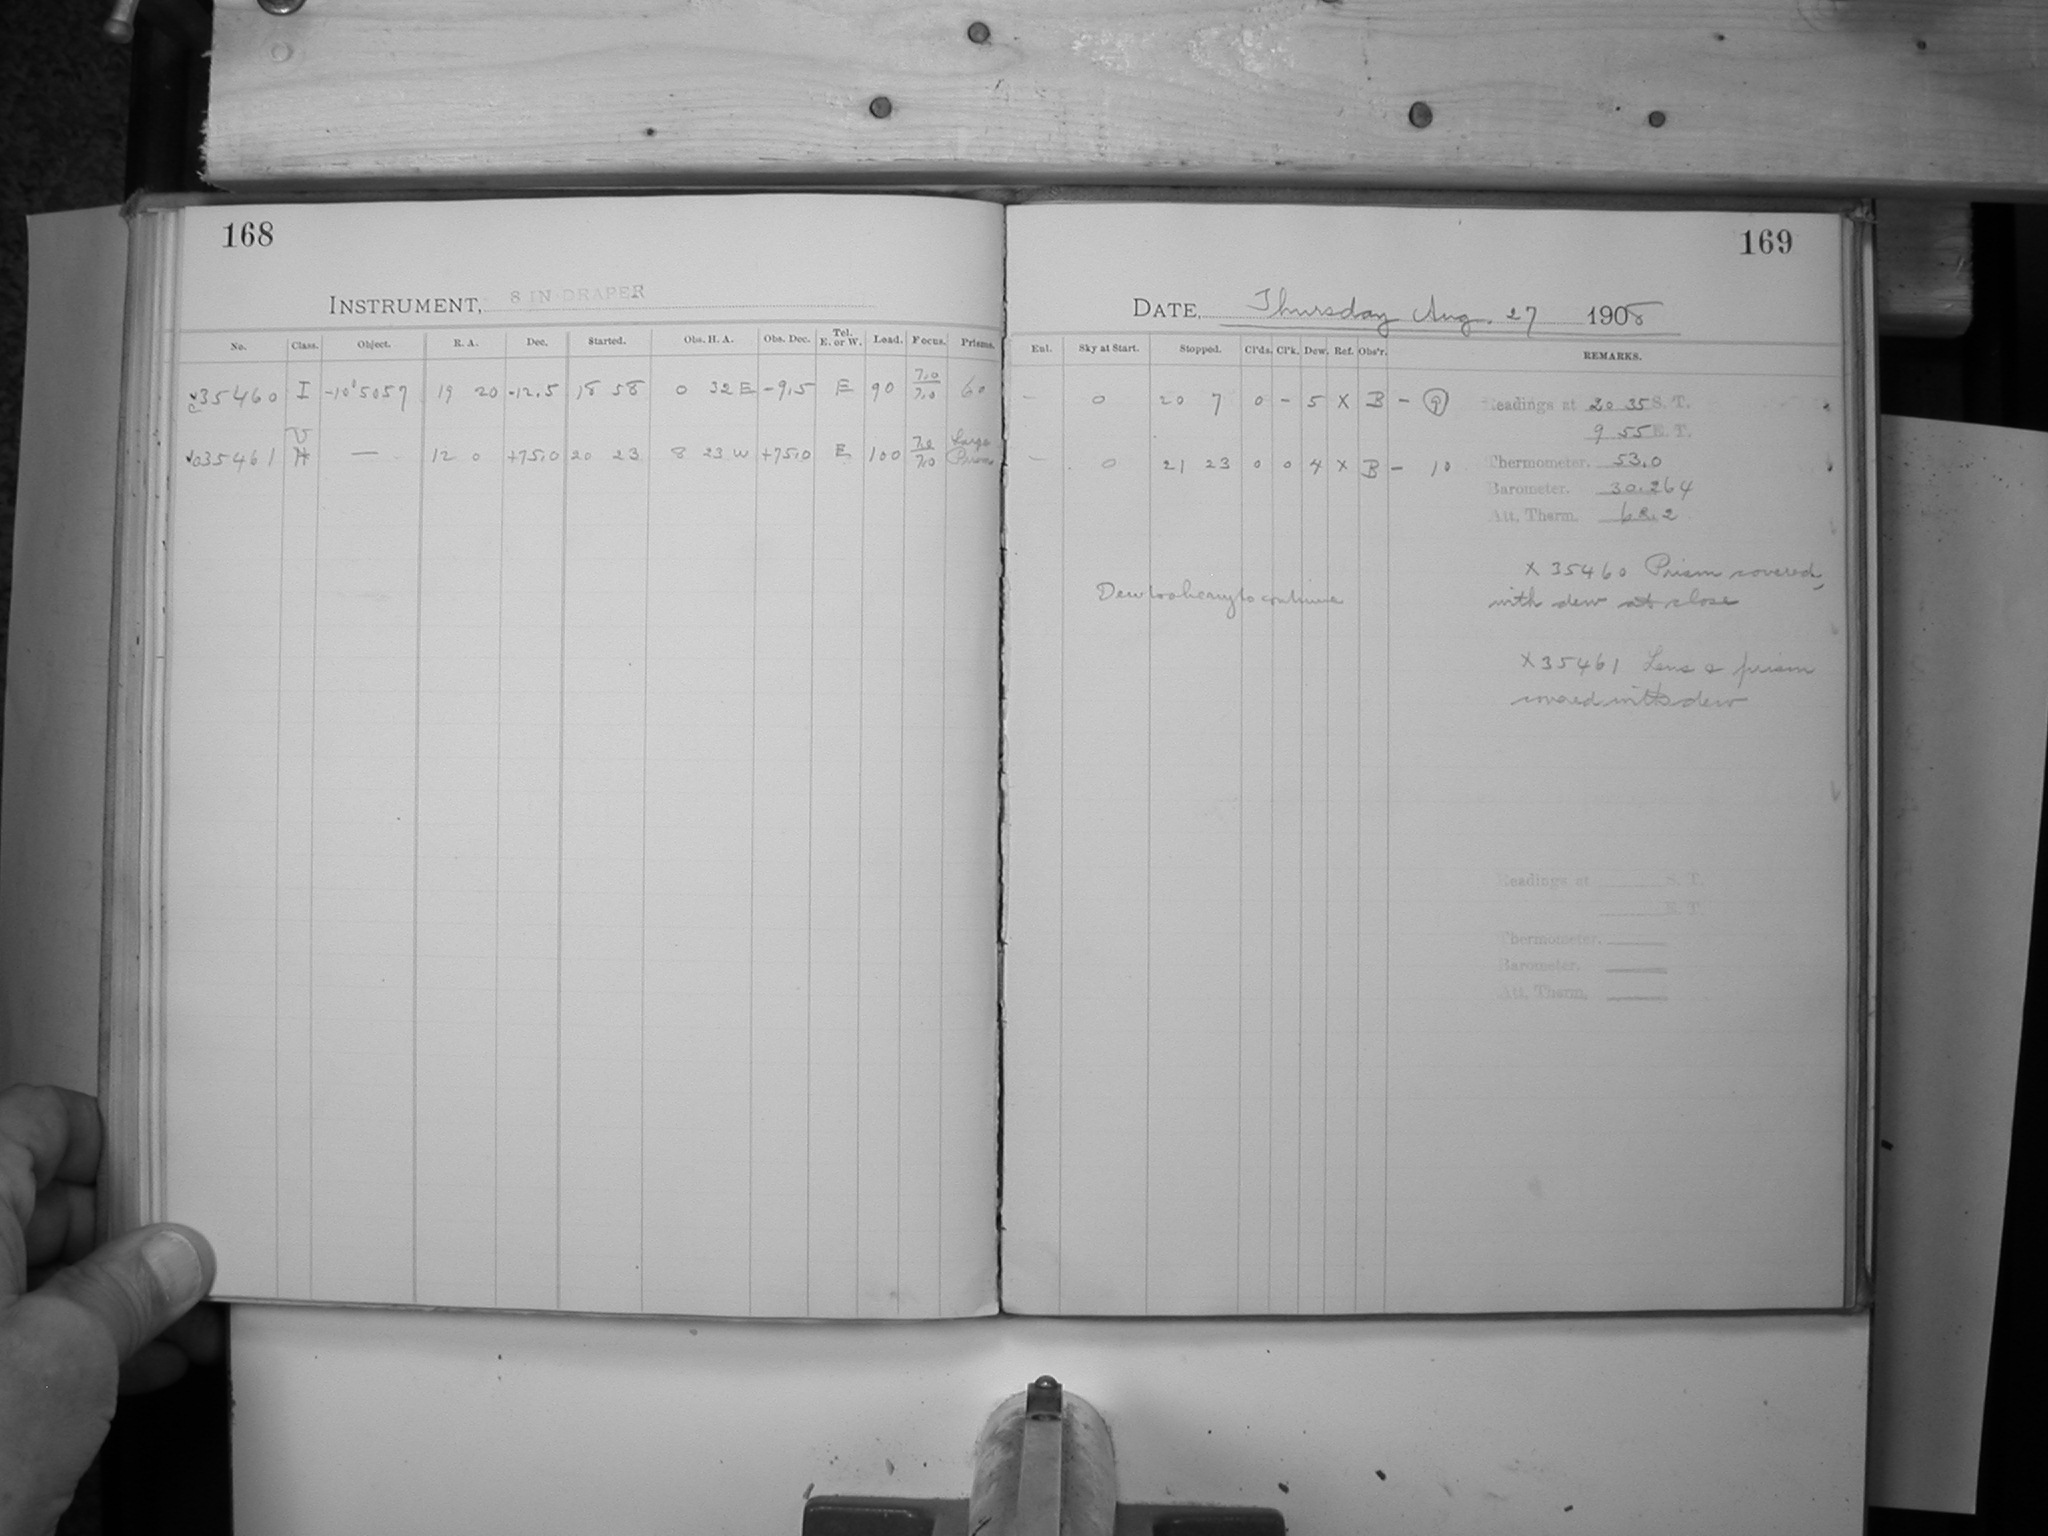 168
INSTRUMENT, 8 IN DRAPER
No. Class. Object. R. A. Dec. Started. Obs. H. A. Obs. Dec. Tel. E. or W. Load. Focus. Prisms.
35460 I -10°5057 19 20 -12.5 18 58 0 32 E -9.5 E 90 7.0/7.0 60
35461 — 12 0 +75.0 20 23 8 23 W +75.0 E 100 7.0/7.0 Large Prism
169
DATE, Thursday Aug. 27 1908
Enl. Sky at Start. Stopped. Cl'ds. Cl'k. Dew. Ref. Obs'r. REMARKS.
— 0 20 7 0 - 5 X B - 9
— 0 21 23 0 0 4 X B - 10
Readings at 20 35 S. T.
9 55 E. T.
Thermometer. 53.0
Barometer. 30.264
Att. Therm.
Dew too heavy to continue
X 35460 Prism covered
with dew at close
X 35461 Lens & prism
covered with dew
Readings at S. T.
E. T.
Thermometer.
Barometer.
Att. Therm.